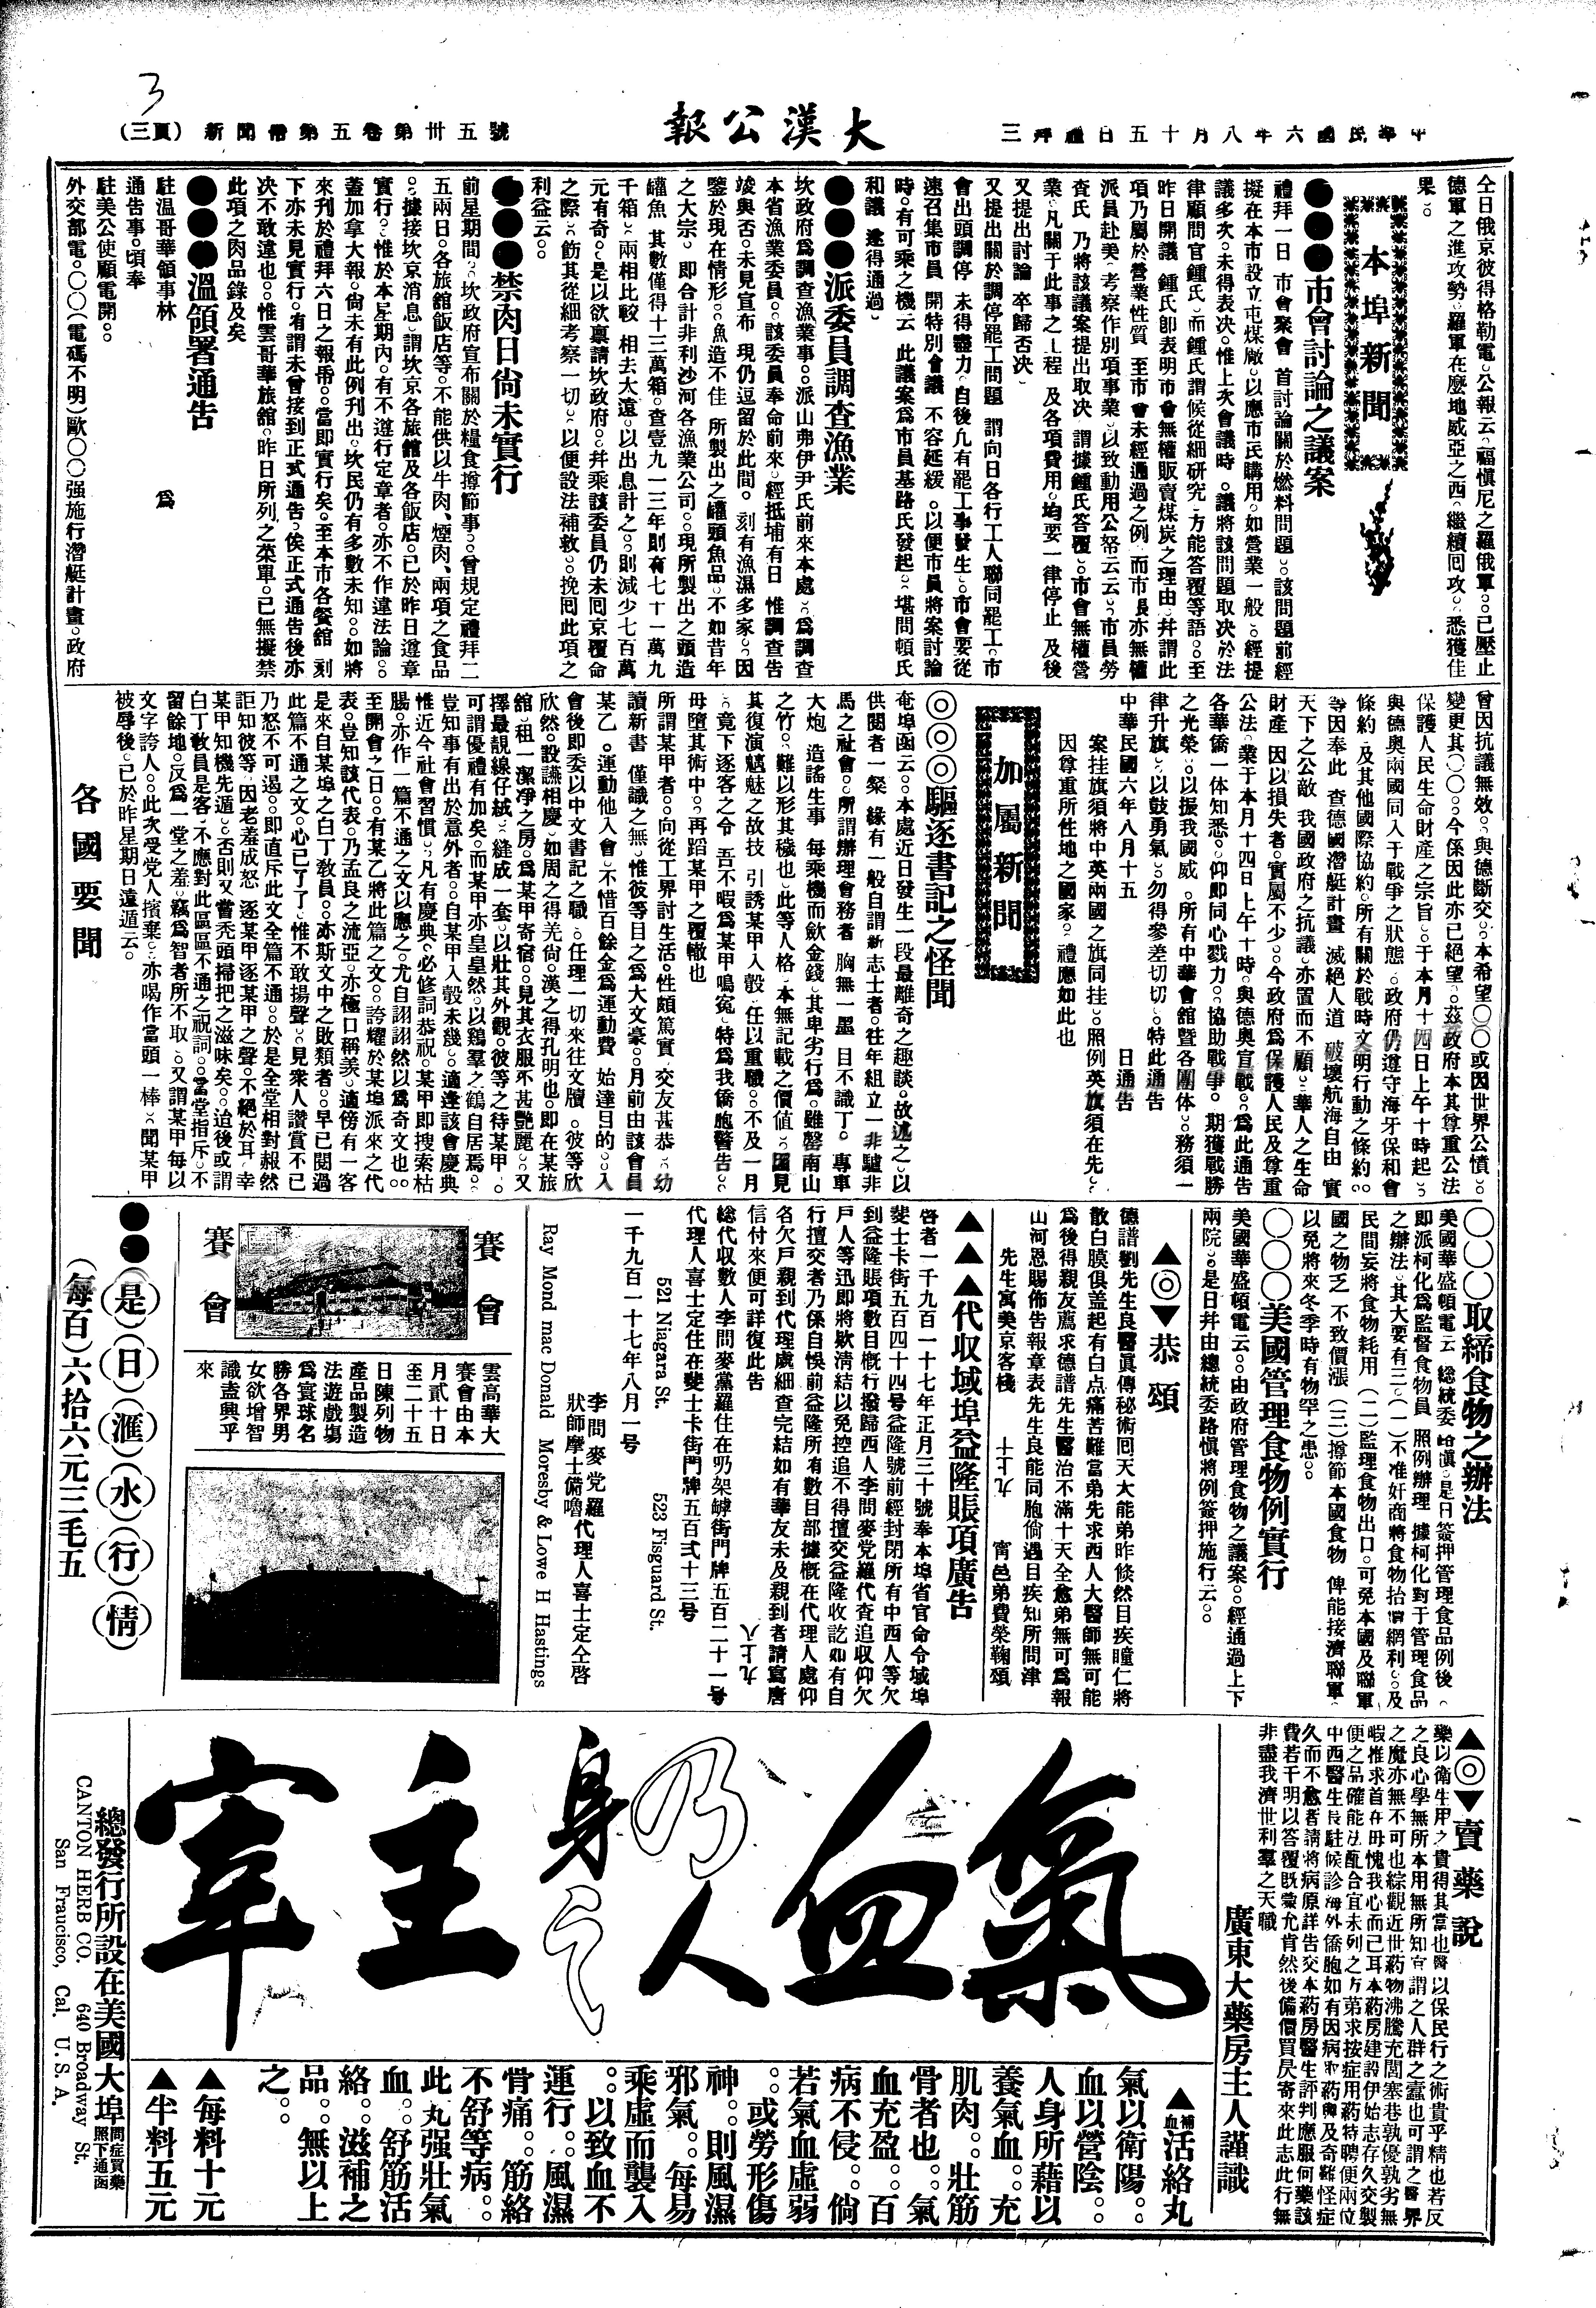 3
中華民國六年八月十五日禮拜三
大漢公報
新聞帋第五卷第卅五號
(頁三)
仝日俄京彼得格勒電。公報云。福愼尼之羅俄軍。已壓止
德軍之進攻勢。羅軍在麽地威亞之西。繼續囘攻。悉獲佳
果。
本埠新聞
●●●市會討論之議案
禮拜一日 市會聚會 首討論關於燃料問題。該問題前經
擬在本市設立屯煤廠。以應市民購用。如營業一般。經提
議多次。未得表决。惟上次會議時。議將該問題取决於法
律顧問官鍾氏。而鍾氏謂候從細研究。方能答覆等語。至
昨日開議 鍾氏卽表明市會無權販賣煤炭之理由。幷謂此
項乃屬於營業性質 至市會未經通過之例 而市長亦無權
派員赴美。考察作別項事業。以致動用公帑云云。市員勞
查氏 乃將該議案提出取决 謂據鍾氏答覆。市會無權營
業。凡關于此事之工程 及各項費用。均要一律停止 及後
又提出討論 卒歸否决
又提出關於調停罷工問題 謂向日各行工人聯同罷工。市
會出頭調停 未得盡力。自後凢有罷工事發生。市會要從
速召集市員 開特別會議 不容延緩。以便市員將案討論
時。有可乘之機云 此議案爲市員基路氏發起。堪問頓氏
和議 遂得通過。
●●●派委員調查漁業
坎政府爲調查漁業事。派山弗伊尹氏前來本處。爲調查
本省漁業委員。該委員奉命前來。經抵埔有日 惟調查告
竣與否。未見宣布 現仍逗留於此間。刻有漁濕多家。因
鑒於現在情形。魚造不佳 所製出之罐頭魚品。不如昔年
之大宗。即合計非利沙河各漁業公司。現所製出之頭造
罐魚 其數僅得十三萬箱。查壹九一三年則有七十一萬九
千箱。兩相比較 相去太遠。以出息計之。則減少七百萬
元有奇。是以欲稟請坎政府。幷乘該委員仍未囘京覆命
之際。飭其從細考察一切。以便設法補救。挽囘此項之
利益云。
●●●禁肉日尙未實行
前星期間。坎政府宣布關於糧食撙節事。曾規定禮拜二
五兩日。各旅舘飯店等。不能供以牛肉、煙肉、兩項之食品
。據接坎京消息。謂坎京各旅舘及各飯店。已於昨日遵章
實行。惟於本星期內。有不遵行定章者。亦不作違法論。
蓋加拿大報。尙未有此例刊出。坎民仍有多數未知。如將
來刋於禮拜六日之報帋。當卽實行矣。至本市各餐舘 刻
下亦未見實行。有謂未曾接到正式通告。俟正式通告後亦
决不敢違也。惟雲哥華旅舘。昨日所列之菜單。已無擬禁
此項之肉品錄及矣
●●●溫領署通告
駐溫哥華領事林 爲
通告事。頃奉
駐美公使顧電開。
外交部電。〇〇(電碼不明)歐〇〇强施行潛艇計畫。政府
曾因抗議無效。與德斷交。本希望〇〇或因世界公憤。
變更其〇〇。今係因此亦已絕望。茲政府本其尊重公法
保護人民生命財產之宗旨。于本月十四日上午十時起。
與德奧兩國同入于戰爭之狀態。政府仍遵守海牙保和會
條約。及其他國際協約。所有關於戰時文明行動之條約。
等因奉此 查德國潛艇計畫 滅絕人道 破壞航海自由 實
天下之公敵 我國政府之抗議。亦置而不顧。華人之生命
財產 因以損失者。實屬不少。今政府爲保護人民及尊重
公法。業于本月十四日上午十時。與德奧宣戰。爲此通告
各華僑一体知悉。仰即同心戮力。協助戰爭。期獲戰勝
之光榮。以振我國威。所有中華會館暨各團体。務須一
律升旗。以鼓勇氣。勿得參差切切。特此通告
中華民國六年八月十五 日通告
案挂旗須將中英兩國之旗同挂。照例英旗須在先。
因尊重所住地之國家。禮應如此也
加屬新聞
◎◎◎驅逐書記之怪聞
奄埠函云。本處近日發生一段最離奇之趣談。故述之。以
供閱者一粲 緣有一般自謂新志士者。往年組立一非驢非
馬之社會。所謂辦理會務者 胸無一墨 目不識丁。專車
大炮 造謠生事 每乘機而歛金錢。其卑劣行爲。雖罄南山
之竹。難以形其穢也。此等人格。本無記載之價值。因見
其復演魑魅之故技 引誘某甲入彀。任以重職。不及一月
。竟下逐客之令 吾不暇爲某甲鳴寃。特爲我僑胞警告。
毋墮其術中。再蹈某甲之覆轍也
所謂某甲者。向從工界討生活。性頗篤實。交友甚恭。幼
讀新書 僅識之無。惟彼等目之爲大文豪。月前由該會員
某乙。運動他入會。不惜百餘金爲運動費 始達目的。入
會後即委以中文書記之職。任理一切來往文牘。彼等欣
欣然。設讌相慶。如周之得羌尙。漢之得孔明也。即在某旅
舘 租一潔净之房。爲某甲寄宿。見其衣服不甚艷麗。又
擇最靚線仔絨。縫成一套。以壯其外觀。彼等之待某甲。
可謂優禮有加矣。而某甲亦皇皇然。以鷄羣之鶴自居焉。
豈知事有出於意外者。自某甲入彀未幾。適逢該會慶典
惟近今社會習慣。凡有慶典。必修詞恭祝。某甲即搜索枯
腸。亦作一篇不通之文以應之。尤自詡詡然以爲奇文也。
至開會之日。有某乙將此篇之文。誇耀於某埠派來之代
表。豈知該代表。乃孟良之流亞。亦極口稱羨。適傍有一客
是來自某埠之白丁敎員。亦斯文中之敗類者。早已閱過
此篇不通之文。心已了了。惟不敢揚聲。見衆人讚賞不已
乃怒不可遏。即直斥此文全篇不通。於是全堂相對赧然
詎知彼等。因老羞成怒 逐某甲逐某甲之聲。不絕於耳。幸
某甲知機先遁。否則又嘗禿頭掃把之滋味矣。迨後或謂
白丁敎員是客。不應對此區區不通之祝詞。當堂指斥。不
留餘地。反爲一堂之羞。竊爲智者所不取。又謂某甲每以
文字誇人。此次受党人擯棄。亦喝作當頭一棒。聞某甲
被辱後。已於昨星期日遠遁云。
各國要聞
〇〇〇取締食物之辦法
美國華盛頓電云 總統委路愼。是日簽押管理食品例後。
即派柯化爲監督食物員 照例辦理 據柯化對于管理食品
之辦法。其大要有三。(一)不准奸商將食物抬價網利。及
民間妄將食物耗用 (二)監理食物出口。可免本國及聯軍
國之物乏 不致價漲 (三)撙節本國食物 俾能接濟聯軍。
以免將來冬季時有物罕之患。
〇〇〇美國管理食物例實行
美國華盛頓電云。由政府管理食物之議案。經通過上下
兩院。是日幷由總統委路愼將例簽押施行云。
▲◎▼恭頌
德譜劉先生良醫眞傳秘術囘天大能弟昨倐然目疾瞳仁將
散白膜俱盖起有白点痛苦難當弟先求西人大醫師無可能
爲後得親友薦求德譜先生醫治不滿十天全愈弟無可爲報
山河恩賜佈告報章表先生良能同胞倘遇目疾知所問津
先生寓美京客棧 九上十 甯邑弟費榮鞠頌
▲▲▲代収域埠益隆賬項廣告
啓者一千九百一十七年正月三十號奉本埠省官命令域埠
斐士卡街五百四十四号益隆號前經封閉所有中西人等欠
到益隆賬項數目概行撥歸西人李問麥党羅代查追収仰欠
戶人等迅即將欵清結以免控追不得擅交益隆收訖如有自
行擅交者乃係自悞前益隆所有數目部據概在代理人處仰
各欠戶親到代理處細查完結如有華友未及親到者請寫唐
信付來便可詳復此告 九上八
総代収數人李問麥黨羅住在叨架罅街門牌五百二十一号
代理人喜士定住在斐士卡街門牌五百弍十三号
521 Niagara St. 523 Fisguard St.
一千九百一十七年八月一号
李問麥党羅
狀師摩士備嚕
代理人喜士定仝啓
Ray Mond mac Donald Moresby & Lowe H Hastings
賽會
賽會
雲高華大
賽會由本
月貳十日
至二十五
日陳列物
產品製造
法遊戲塲
爲寰球名
勝各界男
女欲增智
識盍興乎
來
●●(是)(日)(滙)(水)(行)(情)
(每百)六拾六元三毛五
▲◎▼賣藥說
藥以衛生用之貴得其當也醫以保民行之術貴乎精也若反
之良心學無所本用無所知
謂之人群之蠹也可謂之醫界
之魔亦無不可也綜觀近世葯物沸騰充閭塞巷孰優孰劣無
暇推求首在毋愧我心而已耳本葯房建設伊始志存久交製
便之品確能法配合宜未列之方第求按症用葯特聘便兩位
中西醫生長駐候診海外僑胞如有因病取葯與及奇難怪症
久而不愈者請將病原詳告交本葯房醫生評判應服何藥該
費若干明以答覆既蒙允肯然後備價買灵寄來此志此行無
非盡我濟世利羣之天職
廣東大藥房主人謹識
氣血乃人身之主宰
▲補血活絡丸
氣以衛陽。
血以營陰。
人身所藉以
養氣血。充
肌肉。壯筋
骨者也。氣
血充盈。百
病不侵。倘
若氣血虛弱
。或勞形傷
神。則風濕
邪氣。每易
乘虛而襲入
。以致血不
運行。風濕
骨痛。筋絡
不舒等病。
此丸强壯氣
血。舒筋活
絡。滋補之
品。無以上
之。
▲每料十元
▲半料五元
總發行所設在美國大埠
問症買藥
照下通函
CANTON HERB CO. 640 Broadway St.
San Fraucisco, Cal. U. S. A.